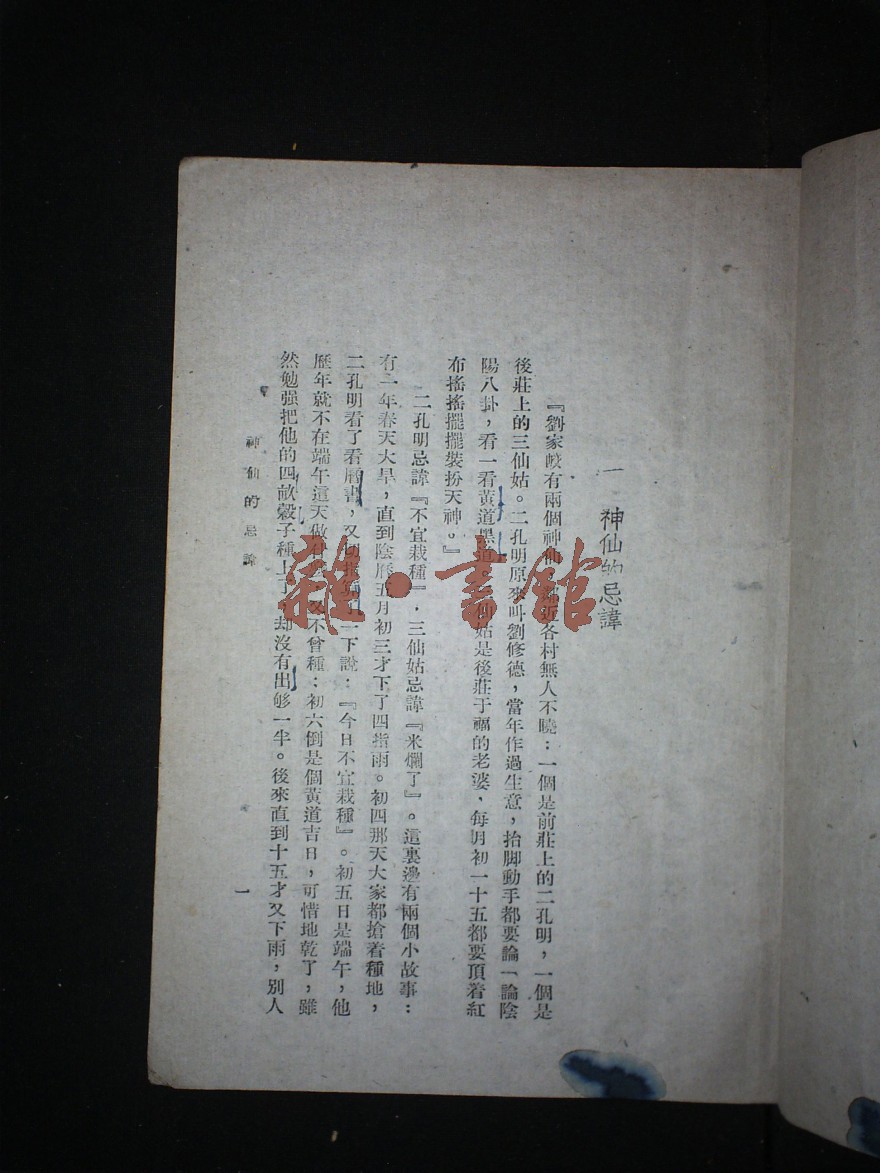 一　神仙的忌諱
『劉家峧有兩個神仙，近各村無人不曉：一個是前莊上的二孔明，一個是
後莊上的三仙姑。二孔明原來叫劉修德，當年作過生意，抬脚動手都要論一論陰
陽八卦，看一看黃道黑　仙姑是後莊于福的老婆，每月初一十五都要頂着紅
布搖搖擺擺裝扮天神。』
二孔明忌諱『不宜栽種』，三仙姑忌諱『米爛了』。這裏邊有兩個小故事：
有一年春天大旱，直到陰曆五月初三才下了四指雨。初四那天大家都搶着種地，
二孔明看了看曆書，又　一下說：『今日不宜栽種』。初五日是端午，他
歷年就不在端午這天做　又不曾種；初六倒是個黃道吉日，可惜地乾了，雖
然勉强把他的四畝穀子種上了，却沒有出够一半。後來直到十五才又下雨，別人
神仙的忌諱
一
雜·書館